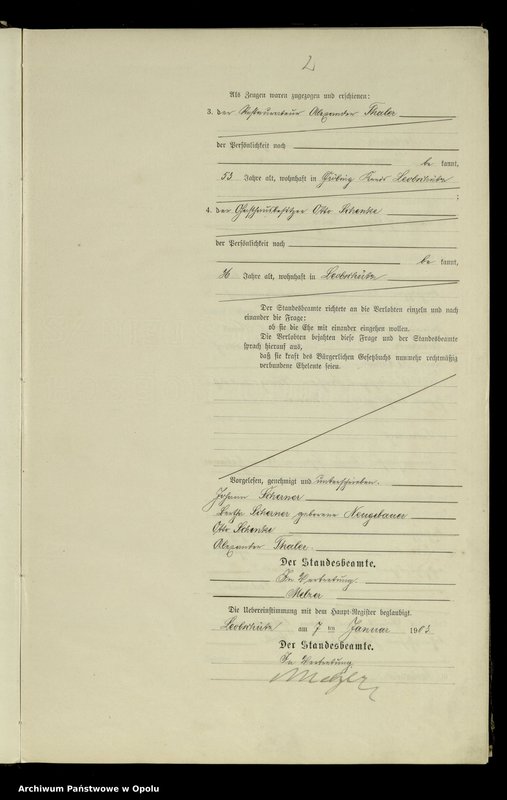 2
Als Zeugen waren zugezogen und erschienen:
3. der Restaurateur Alexander Thaler
der Persönlichkeit nach
be kannt,
53 Jahre alt, wohnhaft in Kreis Leobschütz
;
4. der Gasthausbesitzer Otto Schenke
der Persönlichkeit nach
be kannt,
36 Jahre alt, wohnhaft in Leobschütz
Der Standesbeamte richtete an die Verlobten einzeln und nach
einander die Frage:
ob sie die Ehe mit einander eingehen wollen.
Die Verlobten bejahten diese Frage und der Standesbeamte
sprach hierauf aus,
daß sie kraft des Bürgerlichen Gesetzbuchs nunmehr rechtmäßig
verbundene Eheleute seien.
Vorgelesen, genehmigt und unterschrieben.
Johann Scherner
Bertha Scherner geborene Neugebauer
Otto Schenke
Alexander Thaler.
Der Standesbeamte.
In Vertretung.
Melzer
Die Uebereinstimmung mit dem Haupt-Register beglaubigt.
Leobschütz am 7 ten Januar 1903
Der Standesbeamte.
In Vertretung
Melzer
Archiwum Państwowe w Opolu